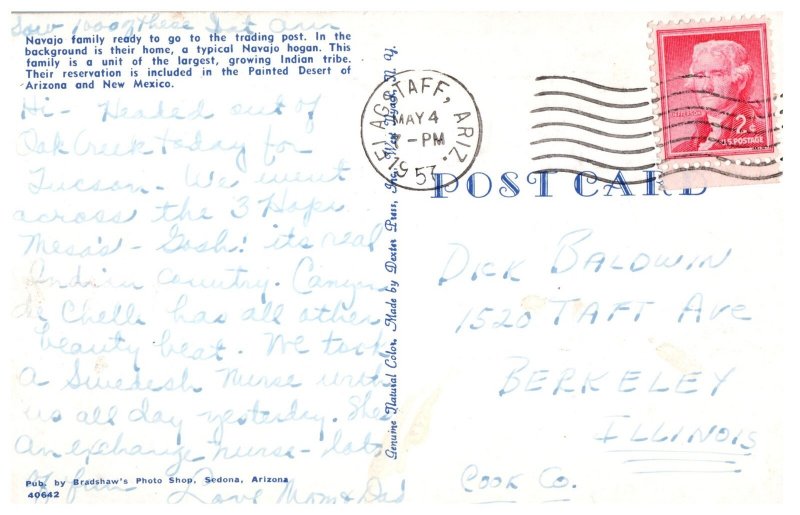 Saw 1000 of these Ist Ann
Navajo family ready to go to the trading post. In the
background is their home, a typical Navajo hogan. This
family is a unit of the largest, growing Indian tribe.
Their reservation is included in the Painted Desert of
Arizona and New Mexico.
Hi - Headed out of
Oak Creek today for
Tucson - We went
across the 3 Hopi
Mesa's - Gosh! its real
Indian country. Canyon
de Chelle has all other
beauty beat. We took
a Swedish Nurse with
us all day yesterday. Shes
An exchange nurse - lots
of fun Love Mom & Dad
Pub. by Bradshaw's Photo Shop, Sedona, Arizona
40642
Genuine Natural Color, Made by Dexter Press, Inc., West Nyack, N. Y.
FLAGSTAFF, ARIZ.
MAY 4
-PM
1957
JEFFERSON
2¢
U.S. POSTAGE
POST CARD
DICK BALDWIN
1520 TAFT AVE
BERKELEY
ILLINOIS
COOK CO.